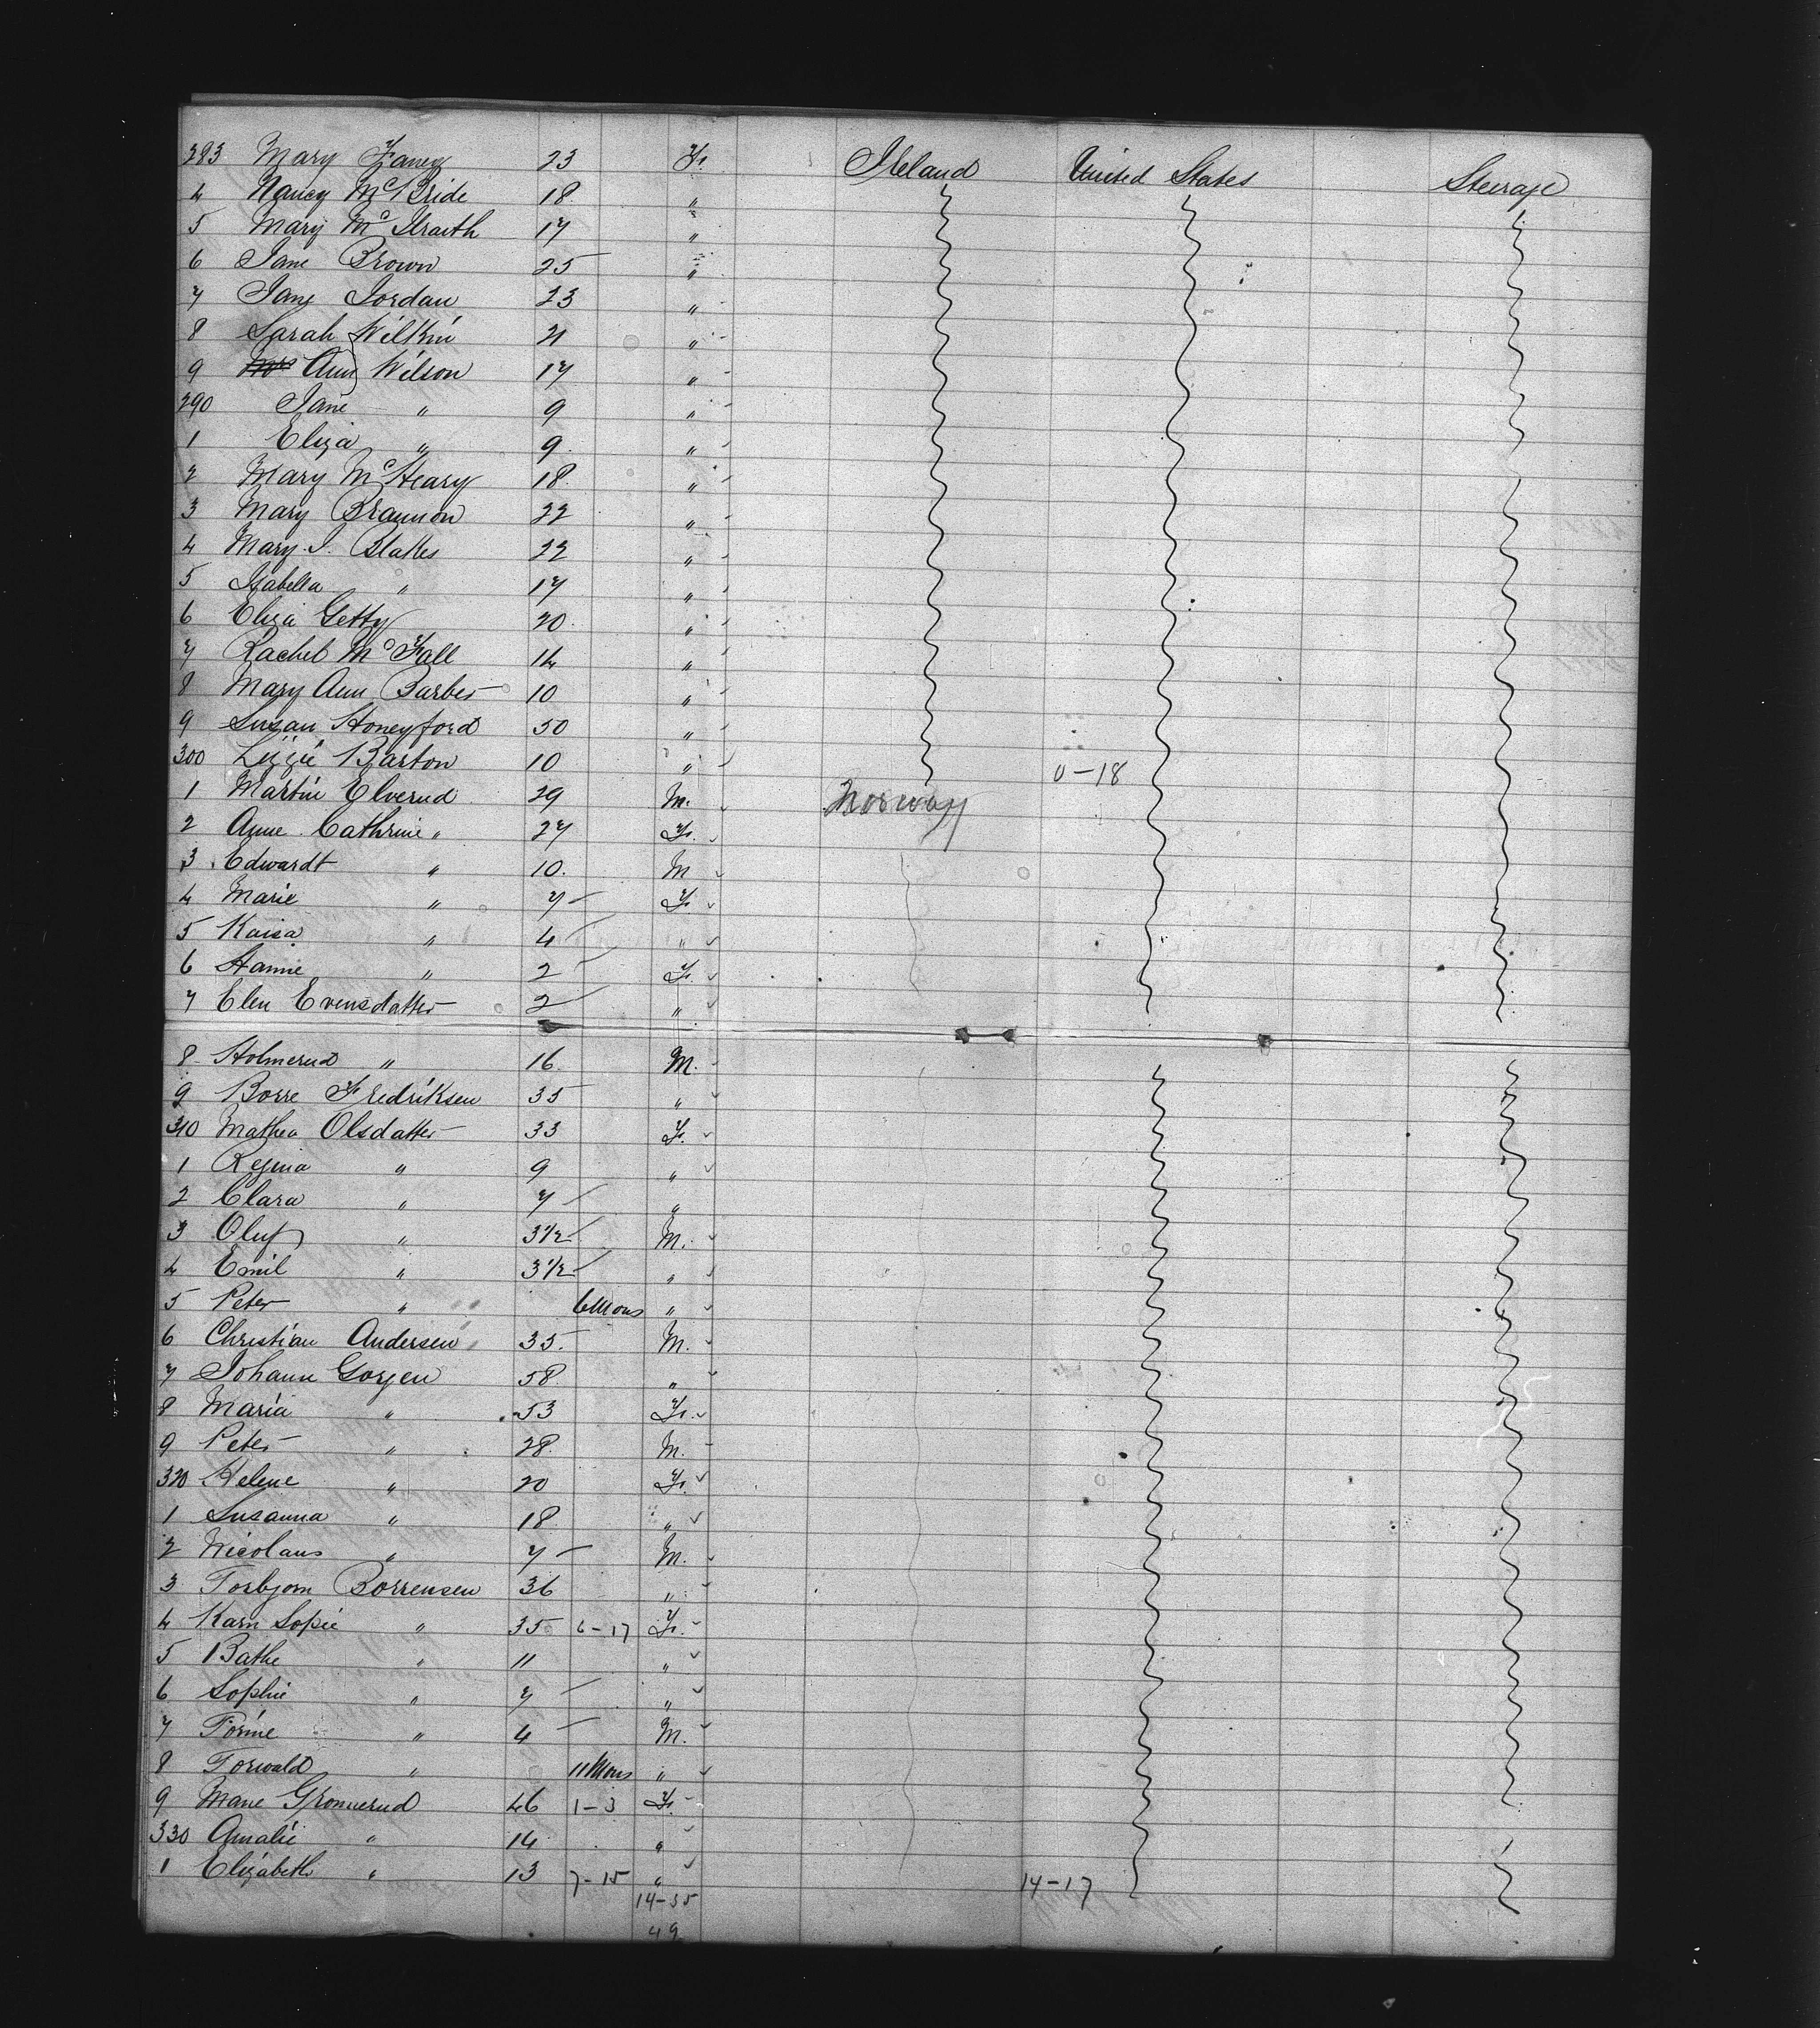 283 Mary Faney 23 F. Ireland United States Steerage
4 Nancy McBride 18 "
5 Mary McIlraith 17 "
6 Jane Brown 25 "
7 Jane Jordan 23 "
8 Sarah Wilkin 21 "
9 Mrs Ann Wilson 17 "
290 Jane " 9 "
1 Eliza " 9 "
2 Mary McHeary 18 "
3 Mary Brannon 22 "
4 Mary J. Blakes 22 "
5 Isabella " 17 "
6 Eliza Getty 20 "
7 Rachel McFall 14 "
8 Mary Ann Barber 10 "
9 Susan Honeyford 50 "
300 Lizzie Barton 10 " 0-18
1 Martin Elverud 29 M. Norway
2 Anne Cathrine " 27 F.
3 Edwardt " 10. M
4 Marie " 7 F.
5 Kaisa " 4 "
6 Hanne " 2 F.
7 Elen Evensdatter 2 "
8 Holmerud " 16 M.
9 Borre Fredriksen 35 "
310 Mathea Olsdatter 33 F.
1 Regina " 9 "
2 Clara " 7 "
3 Oluf " 3 1/2 M.
4 Emil " 3 1/2 "
5 Peter " 6 Mons "
6 Christian Andersen 35. M.
7 Johann Gorjen 58 "
8 Maria " 53 F.
9 Peter " 28. M.
320 Helene " 20 F.
1 Susanna " 18 "
2 Nicolaus " 7 M.
3 Torbjorn Borrensen 36 "
4 Karn Sopie " 35 6-17 F.
5 Bathe " 11 "
6 Sophie " 7 "
7 Torine " 4 M.
8 Torwald " 11 Mons "
9 Mane Gronnerud 46 1-3 F.
330 Amalie " 14 "
1 Elizabeth " 13 7-15 " 14-17
14-35
49